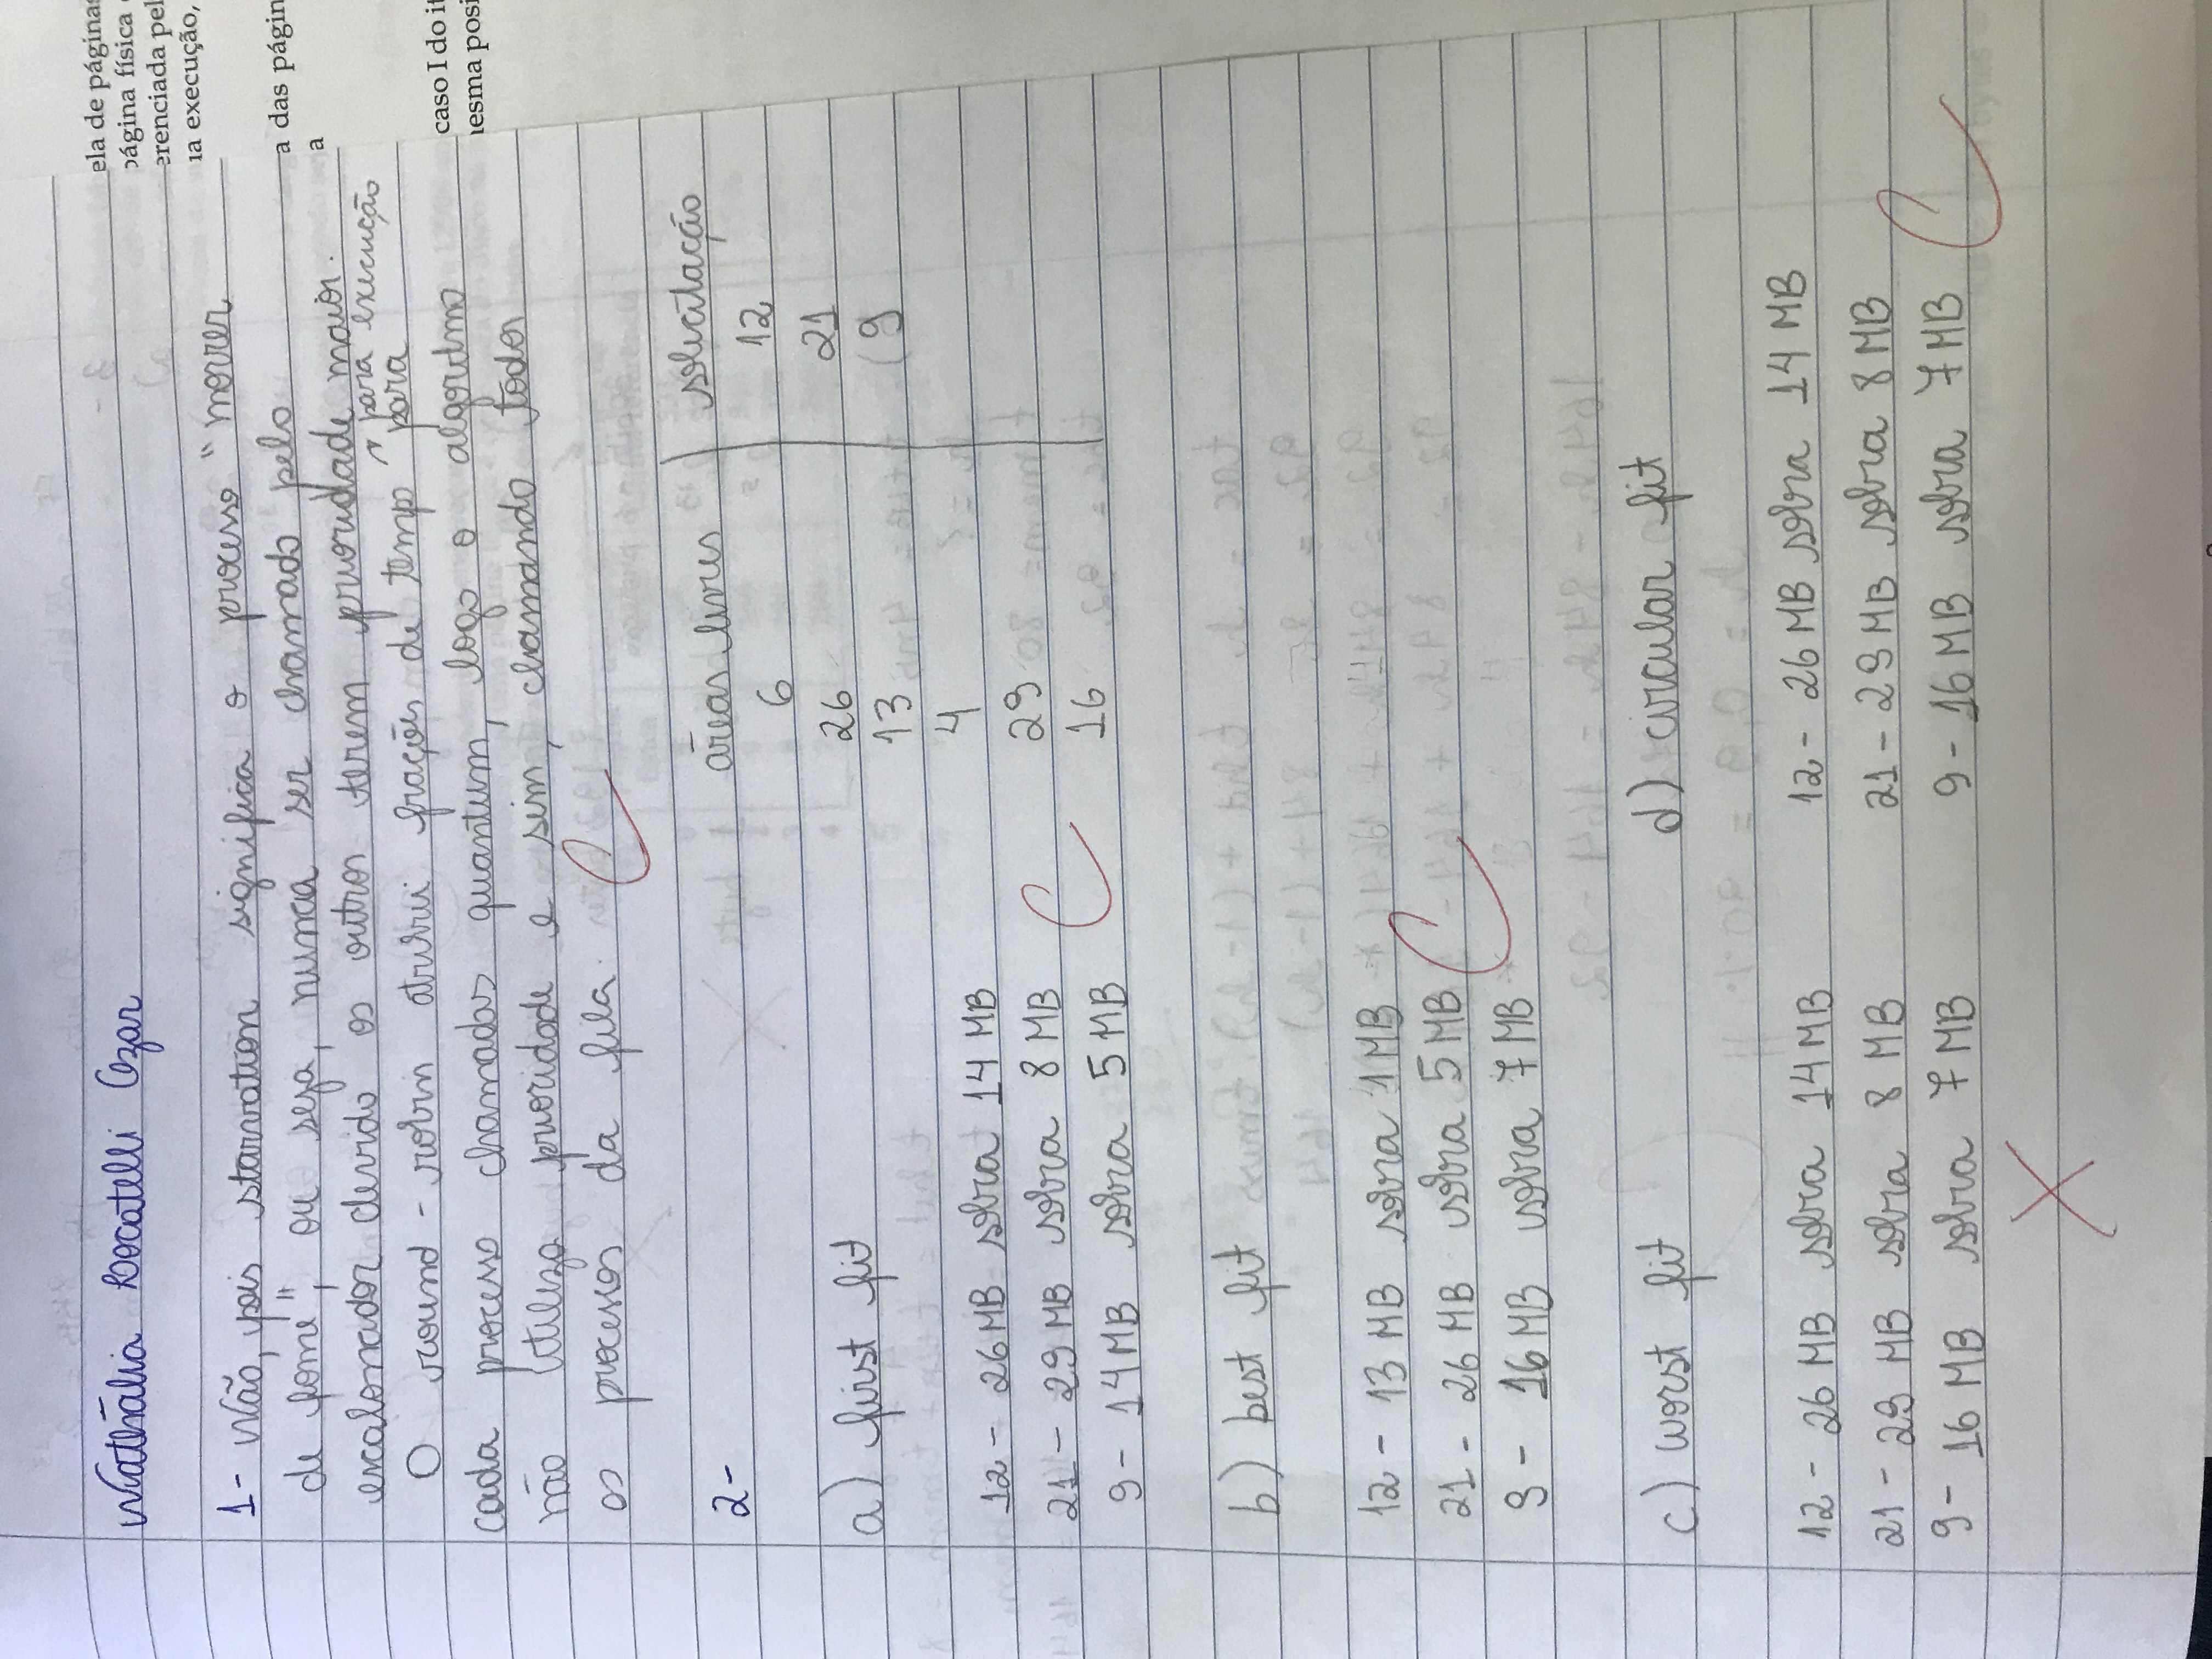 Nathália Locatelli Cezar
1- Não, pois starvation significa o processo "morrer
de fome", ou seja, nunca ser chamado pelo
escalonador devido os outros terem prioridade maior.
para execução
O round-robin atribui frações de tempo para
cada processo chamadas quantum, logo o algoritmo
não utiliza prioridade e sim, chamando todos
os processos da fila.
C
2-
áreas livres solicitação
6 12
26 21
13 9
4
29
16
a) first fit
12 - 26 MB sobra 14 MB
21 - 29 MB sobra 8 MB
9 - 14 MB sobra 5 MB
C
b) best fit
12 - 13 MB sobra 1 MB
21 - 26 MB sobra 5 MB
9 - 16 MB sobra 7 MB
C
c) worst fit
12 - 26 MB sobra 14 MB
21 - 29 MB sobra 8 MB
9 - 16 MB sobra 7 MB
X
d) circular fit
12 - 26 MB sobra 14 MB
21 - 29 MB sobra 8 MB
9 - 16 MB sobra 7 MB
C
ela de páginas
página física
erenciada pel
ua execução,
a das págin
a
caso I do it
mesma posi